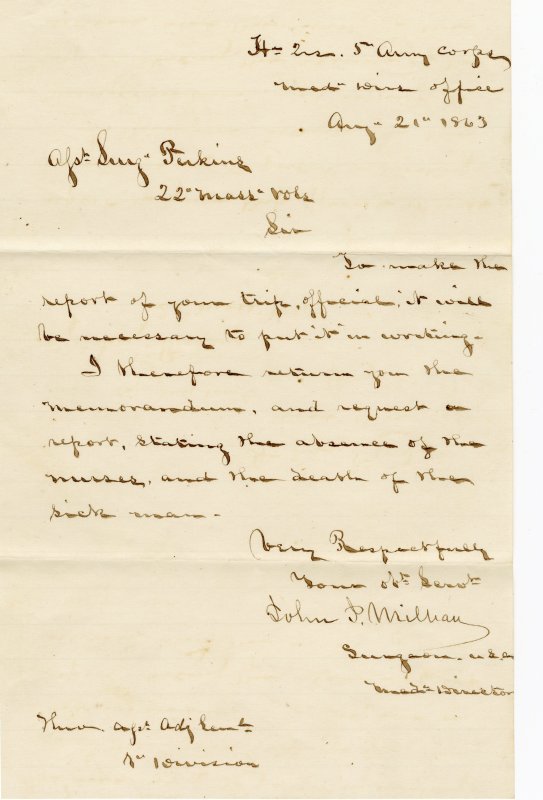 Hd Qrs. 5th Army Corps
Medl Dirs office
Augt 21st 1863
Asst Surgn Perkins
22d Mass. Vols
Sir
To make the
report of your trip, official, it will
be necessary to put "it" in writing.
I therefore return you the
memorandum, and request a
report, stating the absence of the
nurses, and the death of the
sick man.
Very Respectfully
Your obt Servt
John J. Milhau
Surgeon. U.S.A
Medl Director
Thro. Asst Adj Genl
1st Division